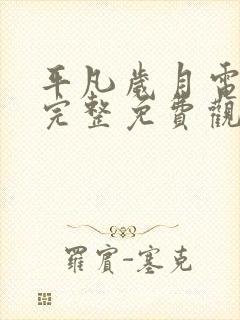 平凡歲月電
完整免費觀
羅賓-塞克